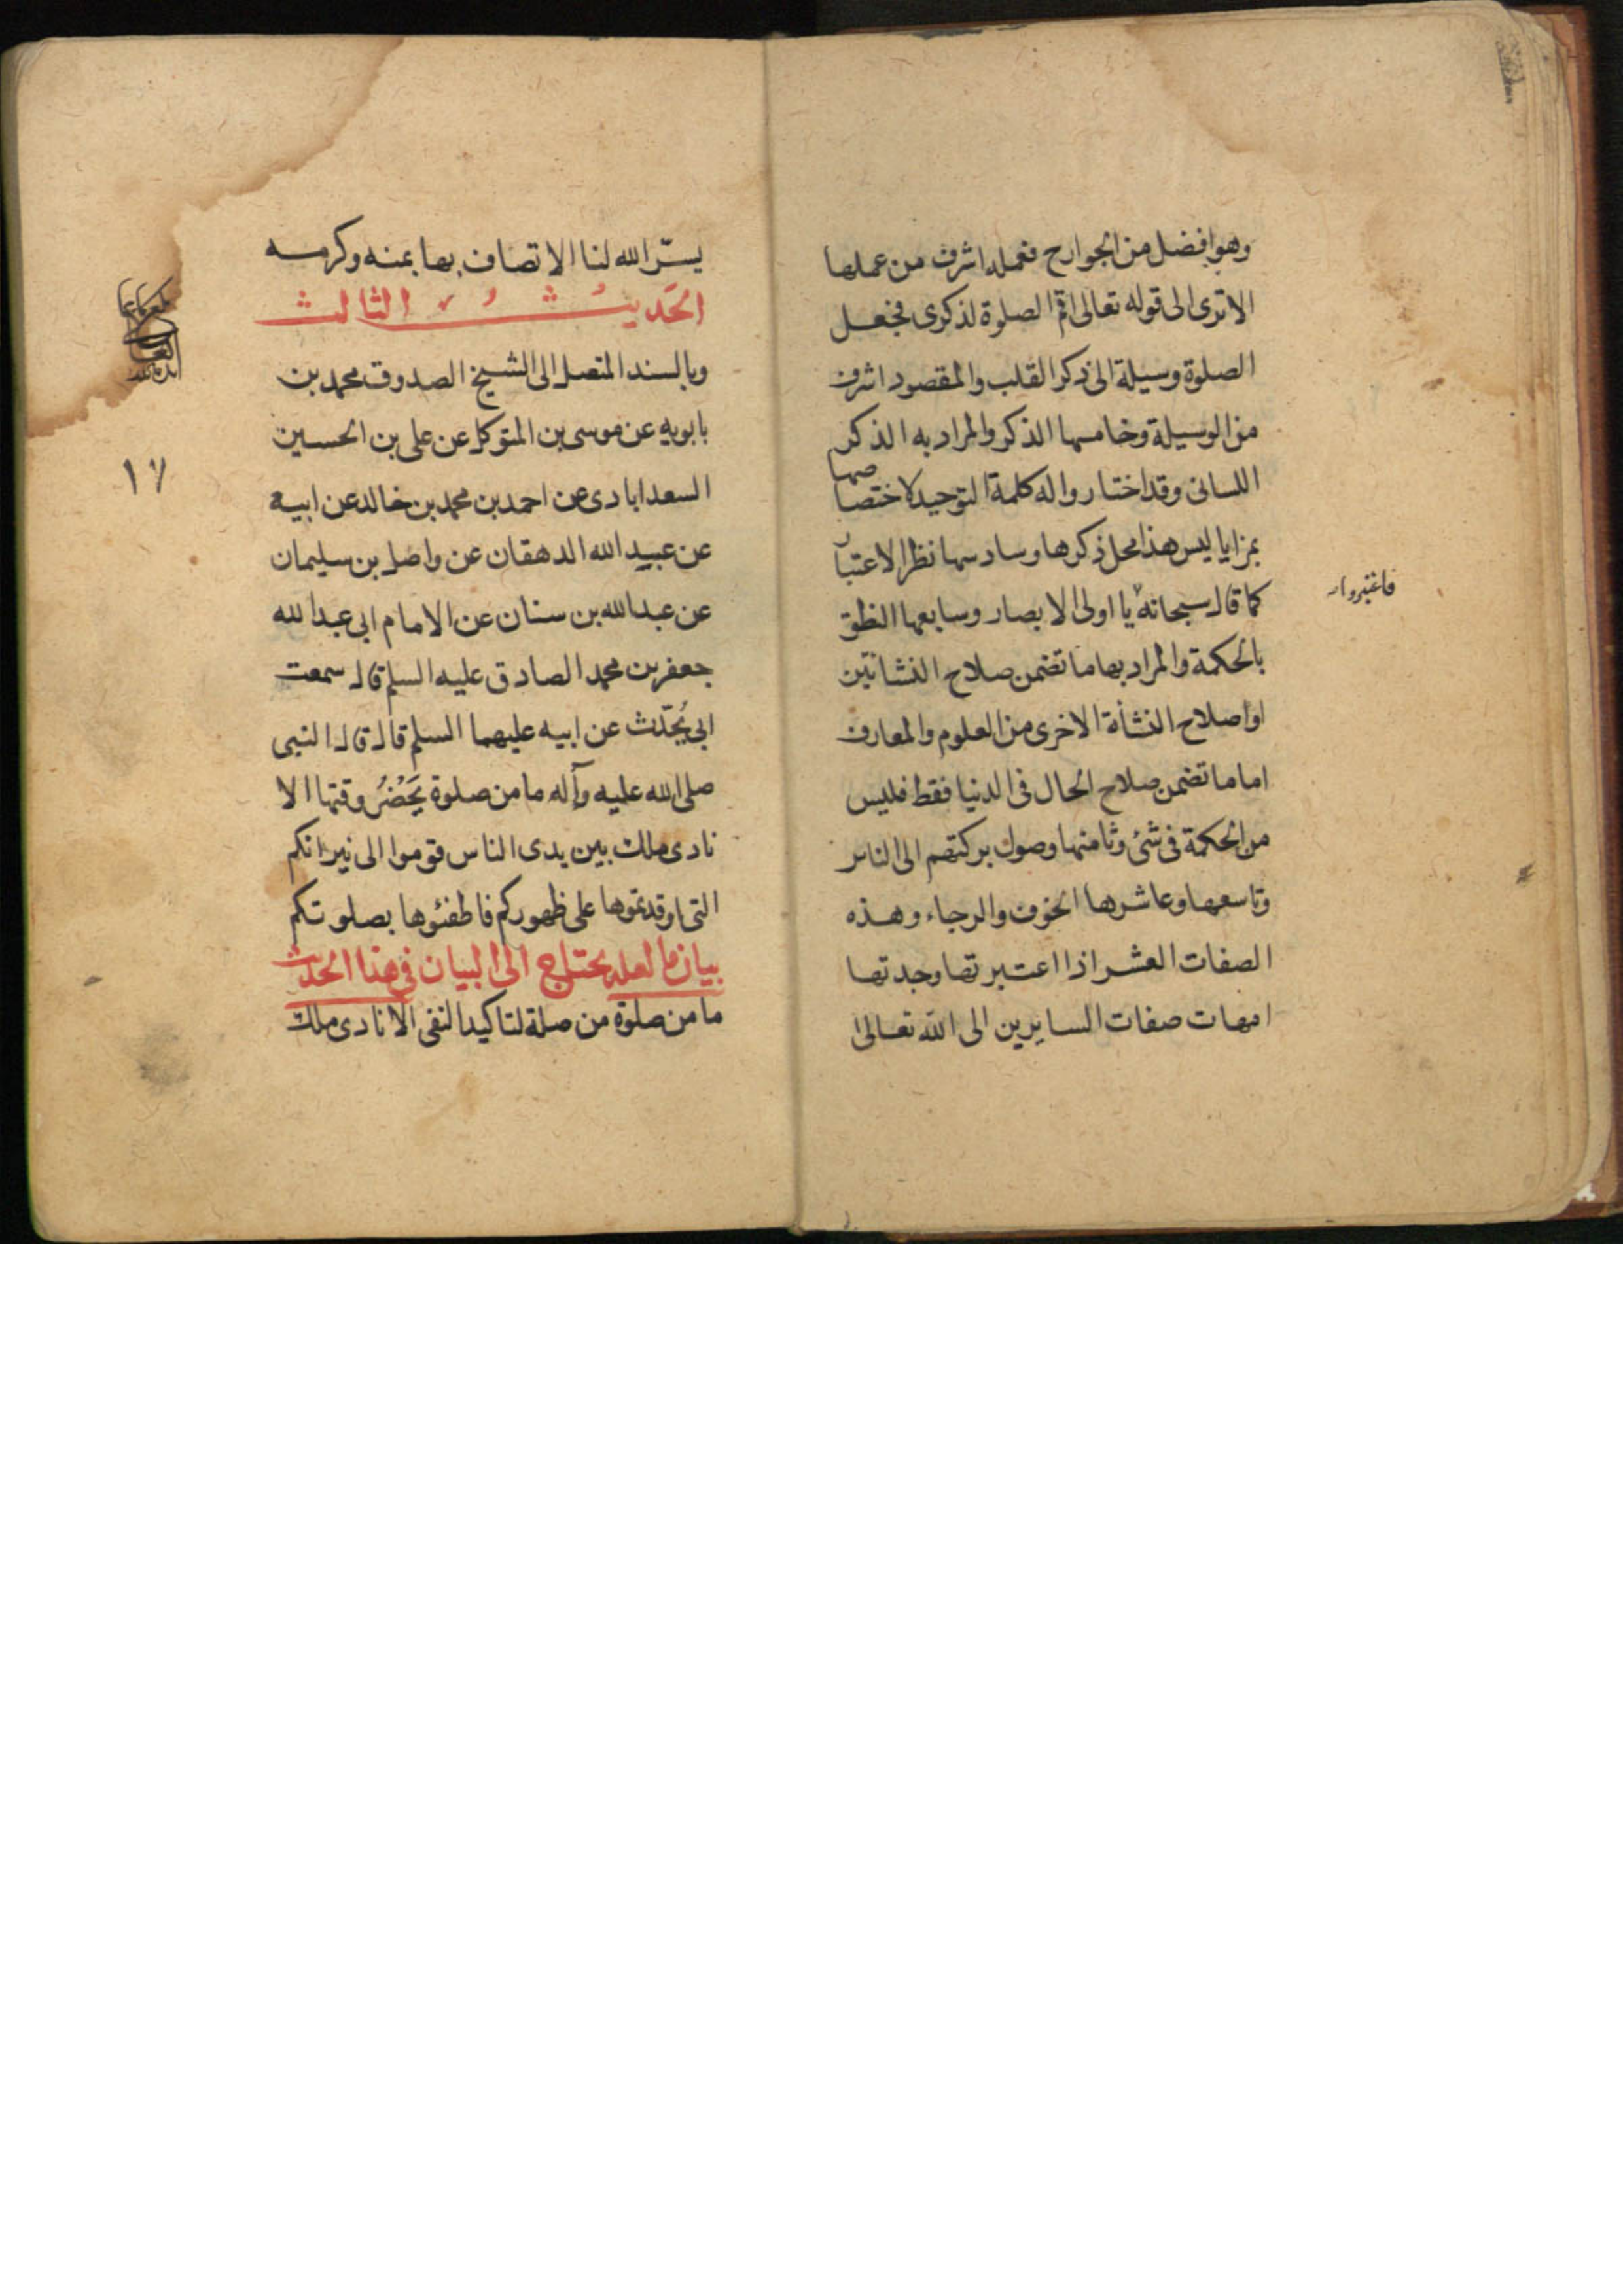 وهو افضل من الجوارح فعمله اشرف من عملها
الا ترى الى قوله تعالى اقم الصلوة لذكرى فجعل
الصلوة وسيلة الى ذكر القلب والمقصود اشرف
من الوسيلة وخامسها الذكر والمراد به الذكر
اللسانى وقد اختار واله كلمة التوحيد لاختصاصها
بمزايا ليس هذا محل ذكرها وسادسها نظر الاعتبار
كما قال سبحانه يا اولى الابصار وسابعها النطق
فاعتبروا
بالحكمة والمراد بها ما تضمن صلاح النشاتين
او اصلاح النشأة الاخرى من العلوم والمعارف
اما ما تضمن صلاح الحال فى الدنيا فقط فليس
من الحكمة فى شئ وثامنها وصول بركتهم الى الناس
وتاسعها وعاشرها الخوف والرجاء وهذه
الصفات العشر اذا اعتبرتها وجدتها
امهات صفات السايرين الى الله تعالى
يسّر الله لنا الاتصاف بها بمنه وكرمه
الحَديثُ الثالث
وبالسند المتصل الى الشيخ الصدوق محمد بن
بابويه عن موسى بن المتوكل عن على بن الحسين
السعدابادى عن احمد بن محمد بن خالد عن ابيه
عن عبيد الله الدهقان عن واصل بن سليمان
عن عبدالله بن سنان عن الامام ابى عبدالله
جعفر بن محمد الصادق عليه السلم قال سمعت
ابى يُحدّث عن ابيه عليهما السلم قال قال النبى
صلى الله عليه وآله ما من صلوة يَحْضُرُ وقتها الا
نادى ملك بين يدى الناس قوموا الى نيرانكم
التى اوقدتموها على ظهوركم فاطفئوها بصلوتكم
بيان ما لعله يحتاج الى البيان فى هذا الحديث
ما من صلوة من صلة لتاكيد النفى الا نادى ملك